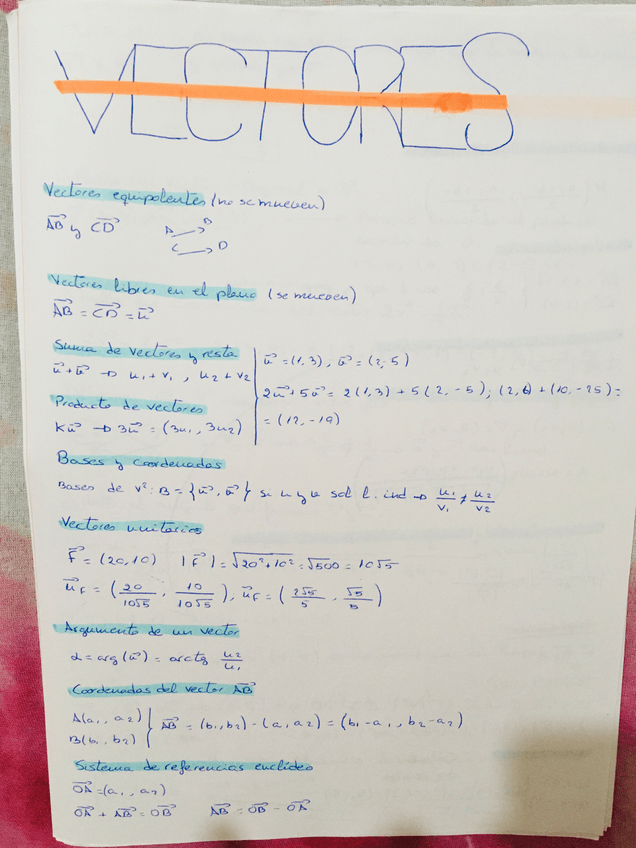 VECTORES
Vectores equipolentes (no se mueven)
AB⃗ y CD⃗
A → B
C → D
Vectores libres en el plano (se mueven)
AB⃗ = CD⃗ = u⃗
Suma de vectores y resta
u⃗+v⃗ → u₁+v₁, u₂+v₂
Producto de vectores
Ku⃗ → 3u⃗ = (3u₁, 3u₂)
u⃗ = (1,3), v⃗ = (2,-5)
2u⃗+5v⃗ = 2(1,3) + 5(2,-5); (2,6)+(10,-25) =
= (12,-19)
Bases y coordenadas
Bases de V²: B = {u⃗, v⃗} si u y v sol l. ind → u₁/v₁ ≠ u₂/v₂
Vectores unitarios
F⃗ = (20,10) |F⃗| = √20²+10² = √500 = 10√5
u⃗F = (20/10√5, 10/10√5), u⃗F = (2√5/5, √5/5)
Argumento de un vector
α = arg(u⃗) = arctg u₂/u₁
Coordenadas del vector AB⃗
A(a₁, a₂)
B(b₁, b₂)
AB⃗ = (b₁,b₂) - (a₁,a₂) = (b₁-a₁, b₂-a₂)
Sistema de referencias euclídeo
OA⃗ = (a₁, a₂)
OA⃗ + AB⃗ = OB⃗ AB⃗ = OB⃗ - OA⃗